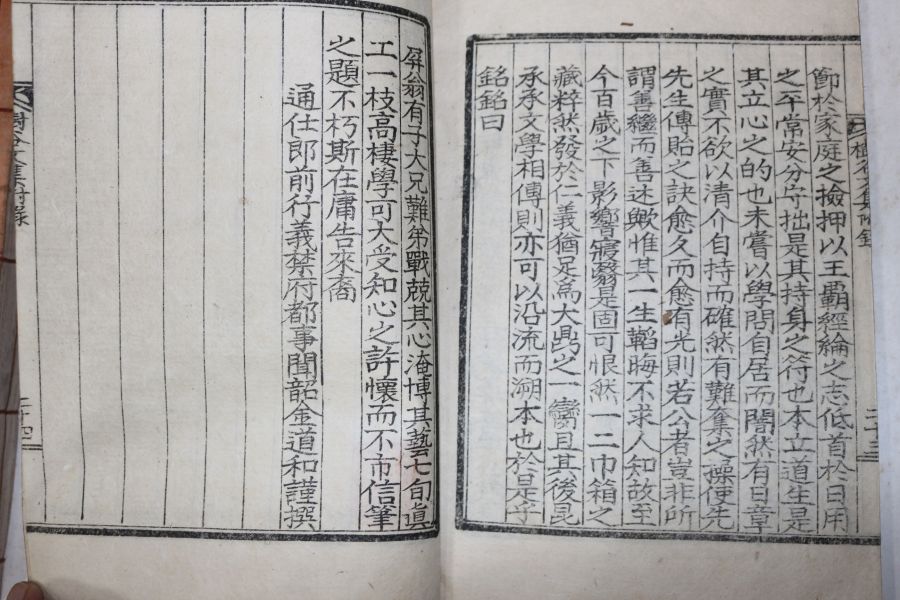 節於家庭之撿押以王霸經綸之志低首於日用
之平常安分守拙是其持身之符也本立道生是
其立心之的也未嘗以學問自居而闇然有日章
之實不欲以清介自持而確然有難奪之操便先
先生傳貽之訣愈久而愈有光則若公者豈非所
謂善繼而善述歟惟其一生韜晦不求人知故至
今百歲之下影響寢翳是固可恨然一二巾箱之
藏粹然發於仁義猶足爲大鼎之一臠且其後昆
承承文學相傳則亦可以沿流而溯本也於是乎
銘銘曰
屛翁有子大兄難弟戰兢其心淹博其藝七旬眞
工一枝高棲學可大受知心之許懷而不市信筆
之題不朽斯在庸告來裔
通仕郎前行義禁府都事聞韶金道和謹撰
文集附錄
二十四